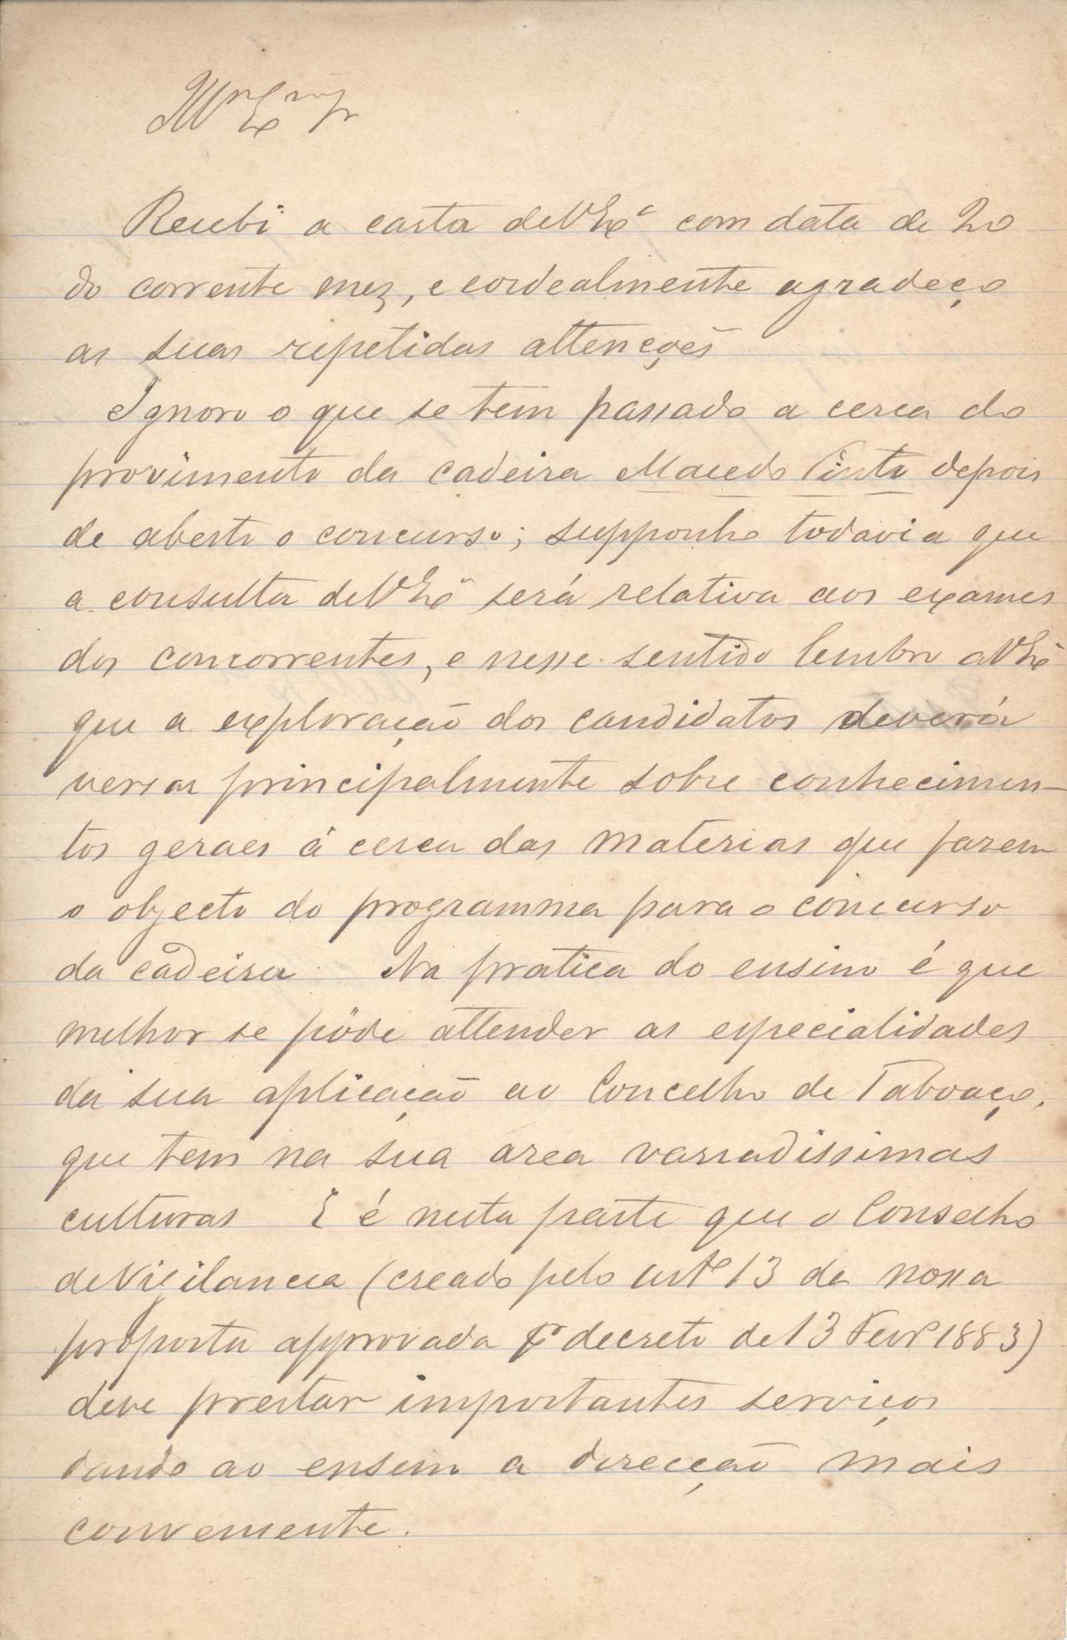 Illmo Exmo Sr
Recebi a carta de V Exa com data de 20
do corrente mez, e cordealmente agradeço
as suas repetidas attenções
Ignoro o que se tem passado a cerca do
provimento da cadeira Macedo Pinto depois
de aberto o concurso; supponho todavia que
a consulta de V Exa será relativa aos exames
dos concorrentes, e nesse sentido lembro a V Exa
que a exploração dos candidatos deverá
versar principalmente sobre conhecimen-
tos geraes á cerca das materias que fazem
o objecto do programma para o concurso
da cadeira Na pratica do ensino é que
melhor se póde attender as especialidades
da sua aplicação ao Concelho de Taboaço,
que tem na sua area variadissimas
culturas E é nesta parte que o Conselho
de Vigilancia (creado pelo arto 13 da nossa
proposta approvada pr decreto de 13 Fevro 1883)
deve prestar importantes serviços
dando ao ensino a direcção mais
conveniente.